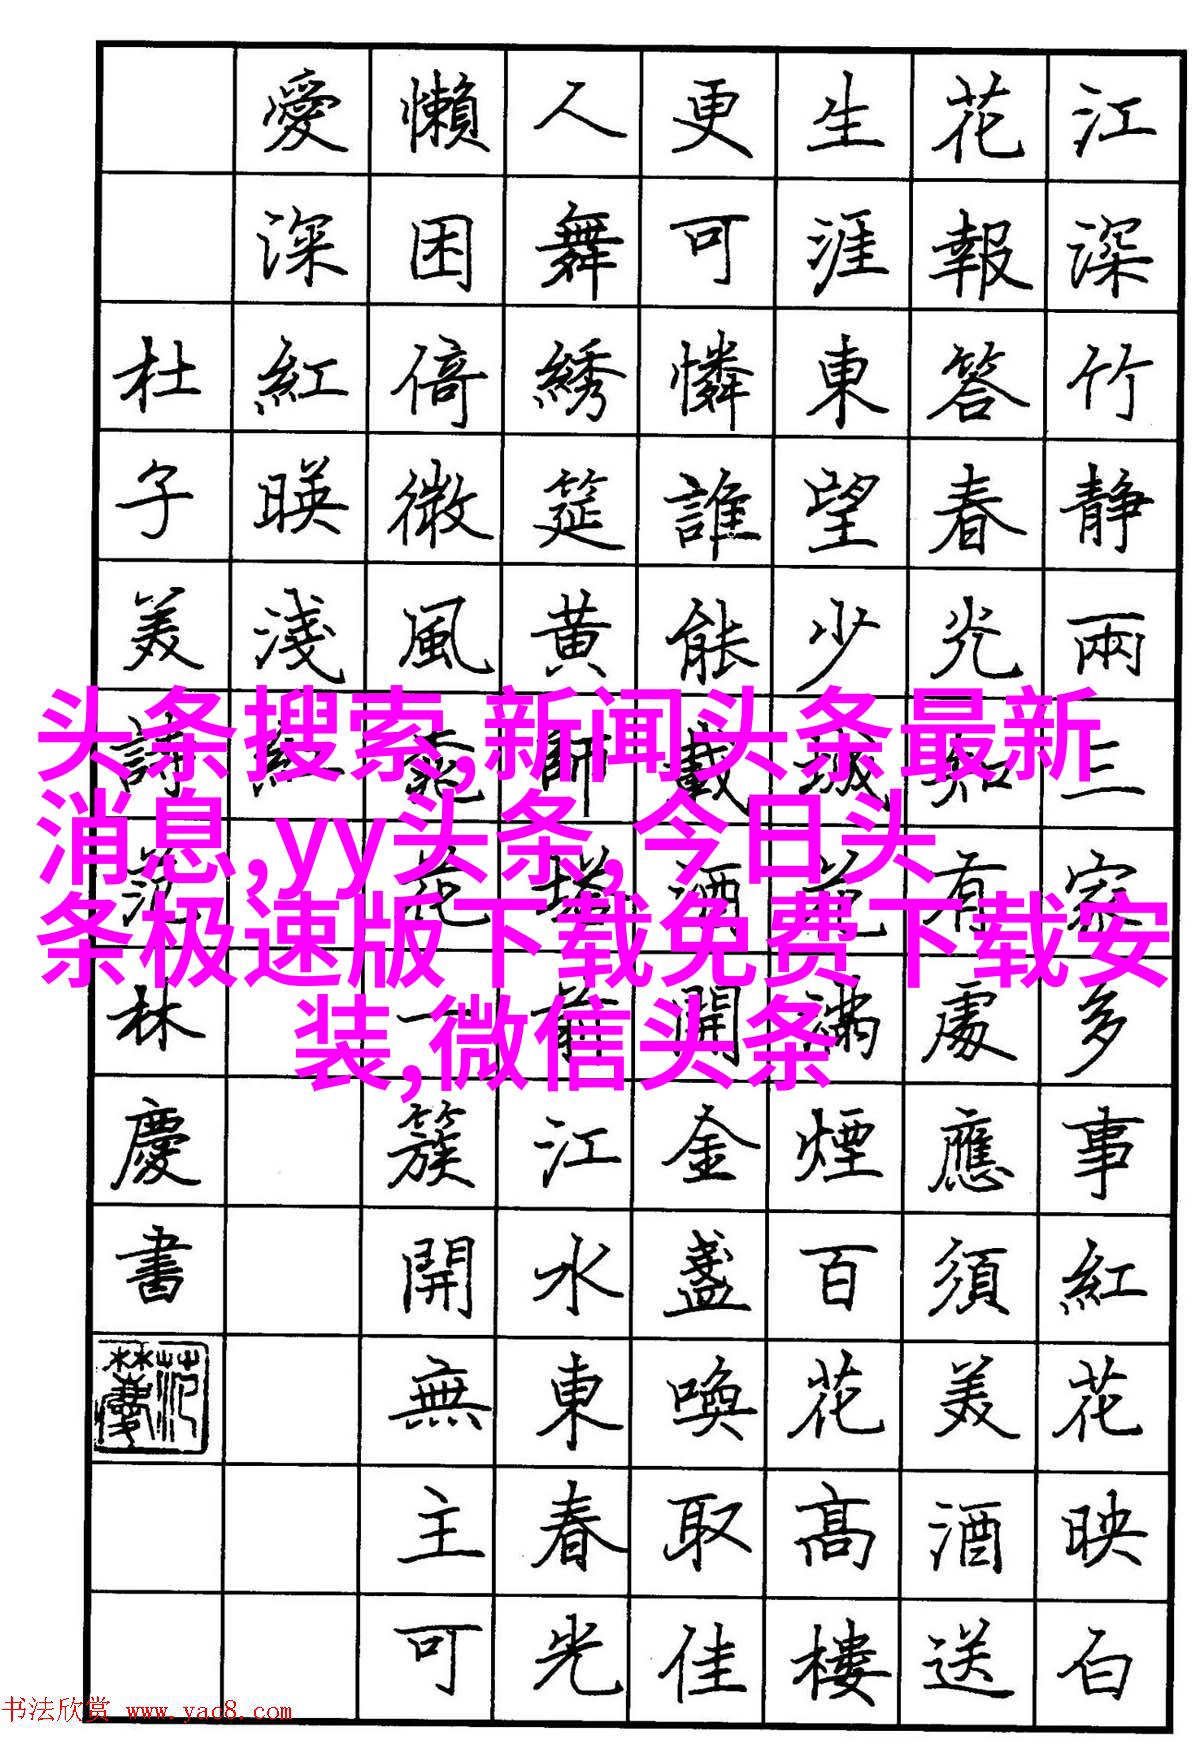 江深竹静兩三家多事紅花映白
花報答春光知有處應須美酒送
生涯東望少城花滿煙百花高樓
更可憐誰能載酒開金盞喚取佳
人舞綉筵黄師塔前江水東春光
懶困倚微風桃花一簇開無主可
愛深紅暎淺紅
杜子美詩范林慶書
头条搜索,新闻头条最新
消息,yy头条,今日头
条极速版下载免费下载安
装,微信头条
书法欣赏 www.yac8.com